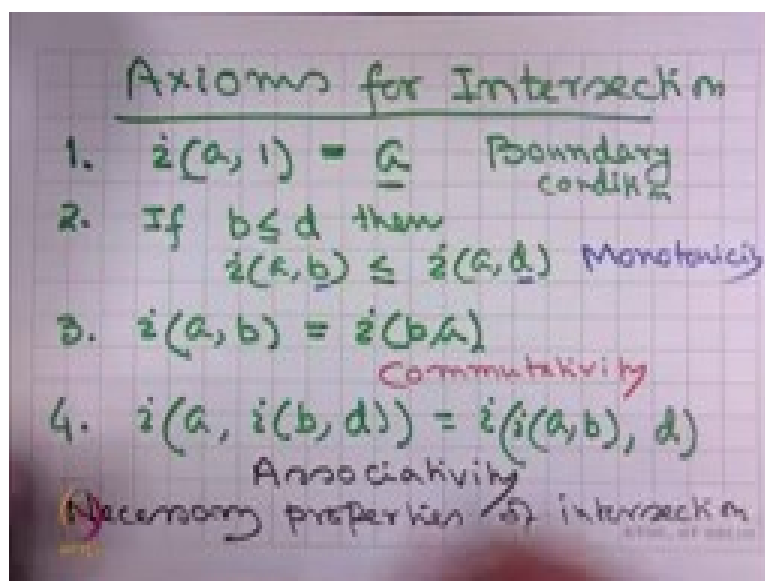 Axioms for Intersection
1. i(a, 1) = a Boundary
condition
2. If b ≤ d then
i(a, b) ≤ i(a, d) Monotonicity
3. i(a, b) = i(b, a)
Commutativity
4. i(a, i(b, d)) = i(i(a, b), d)
Associativity
Necessary properties of intersection